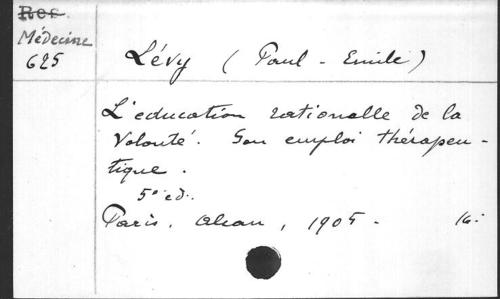 Res.
Médecine
625
Lévy (Paul-Emile)
L'education rationalle de la
Volonté. Son emploi thérapeu-
tique.
5e ed.
Paris. Alcan, 1905-
16: